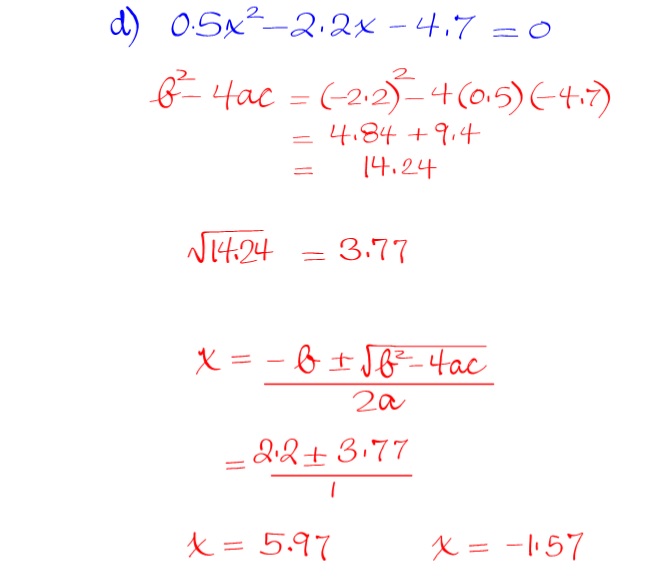 d) 0.5x² - 2.2x - 4.7 = 0
b² - 4ac = (-2.2)² - 4(0.5)(-4.7)
= 4.84 + 9.4
= 14.24
√14.24 = 3.77
x = -b ± √b² - 4ac
2a
= 2.2 ± 3.77
1
x = 5.97 x = -1.57